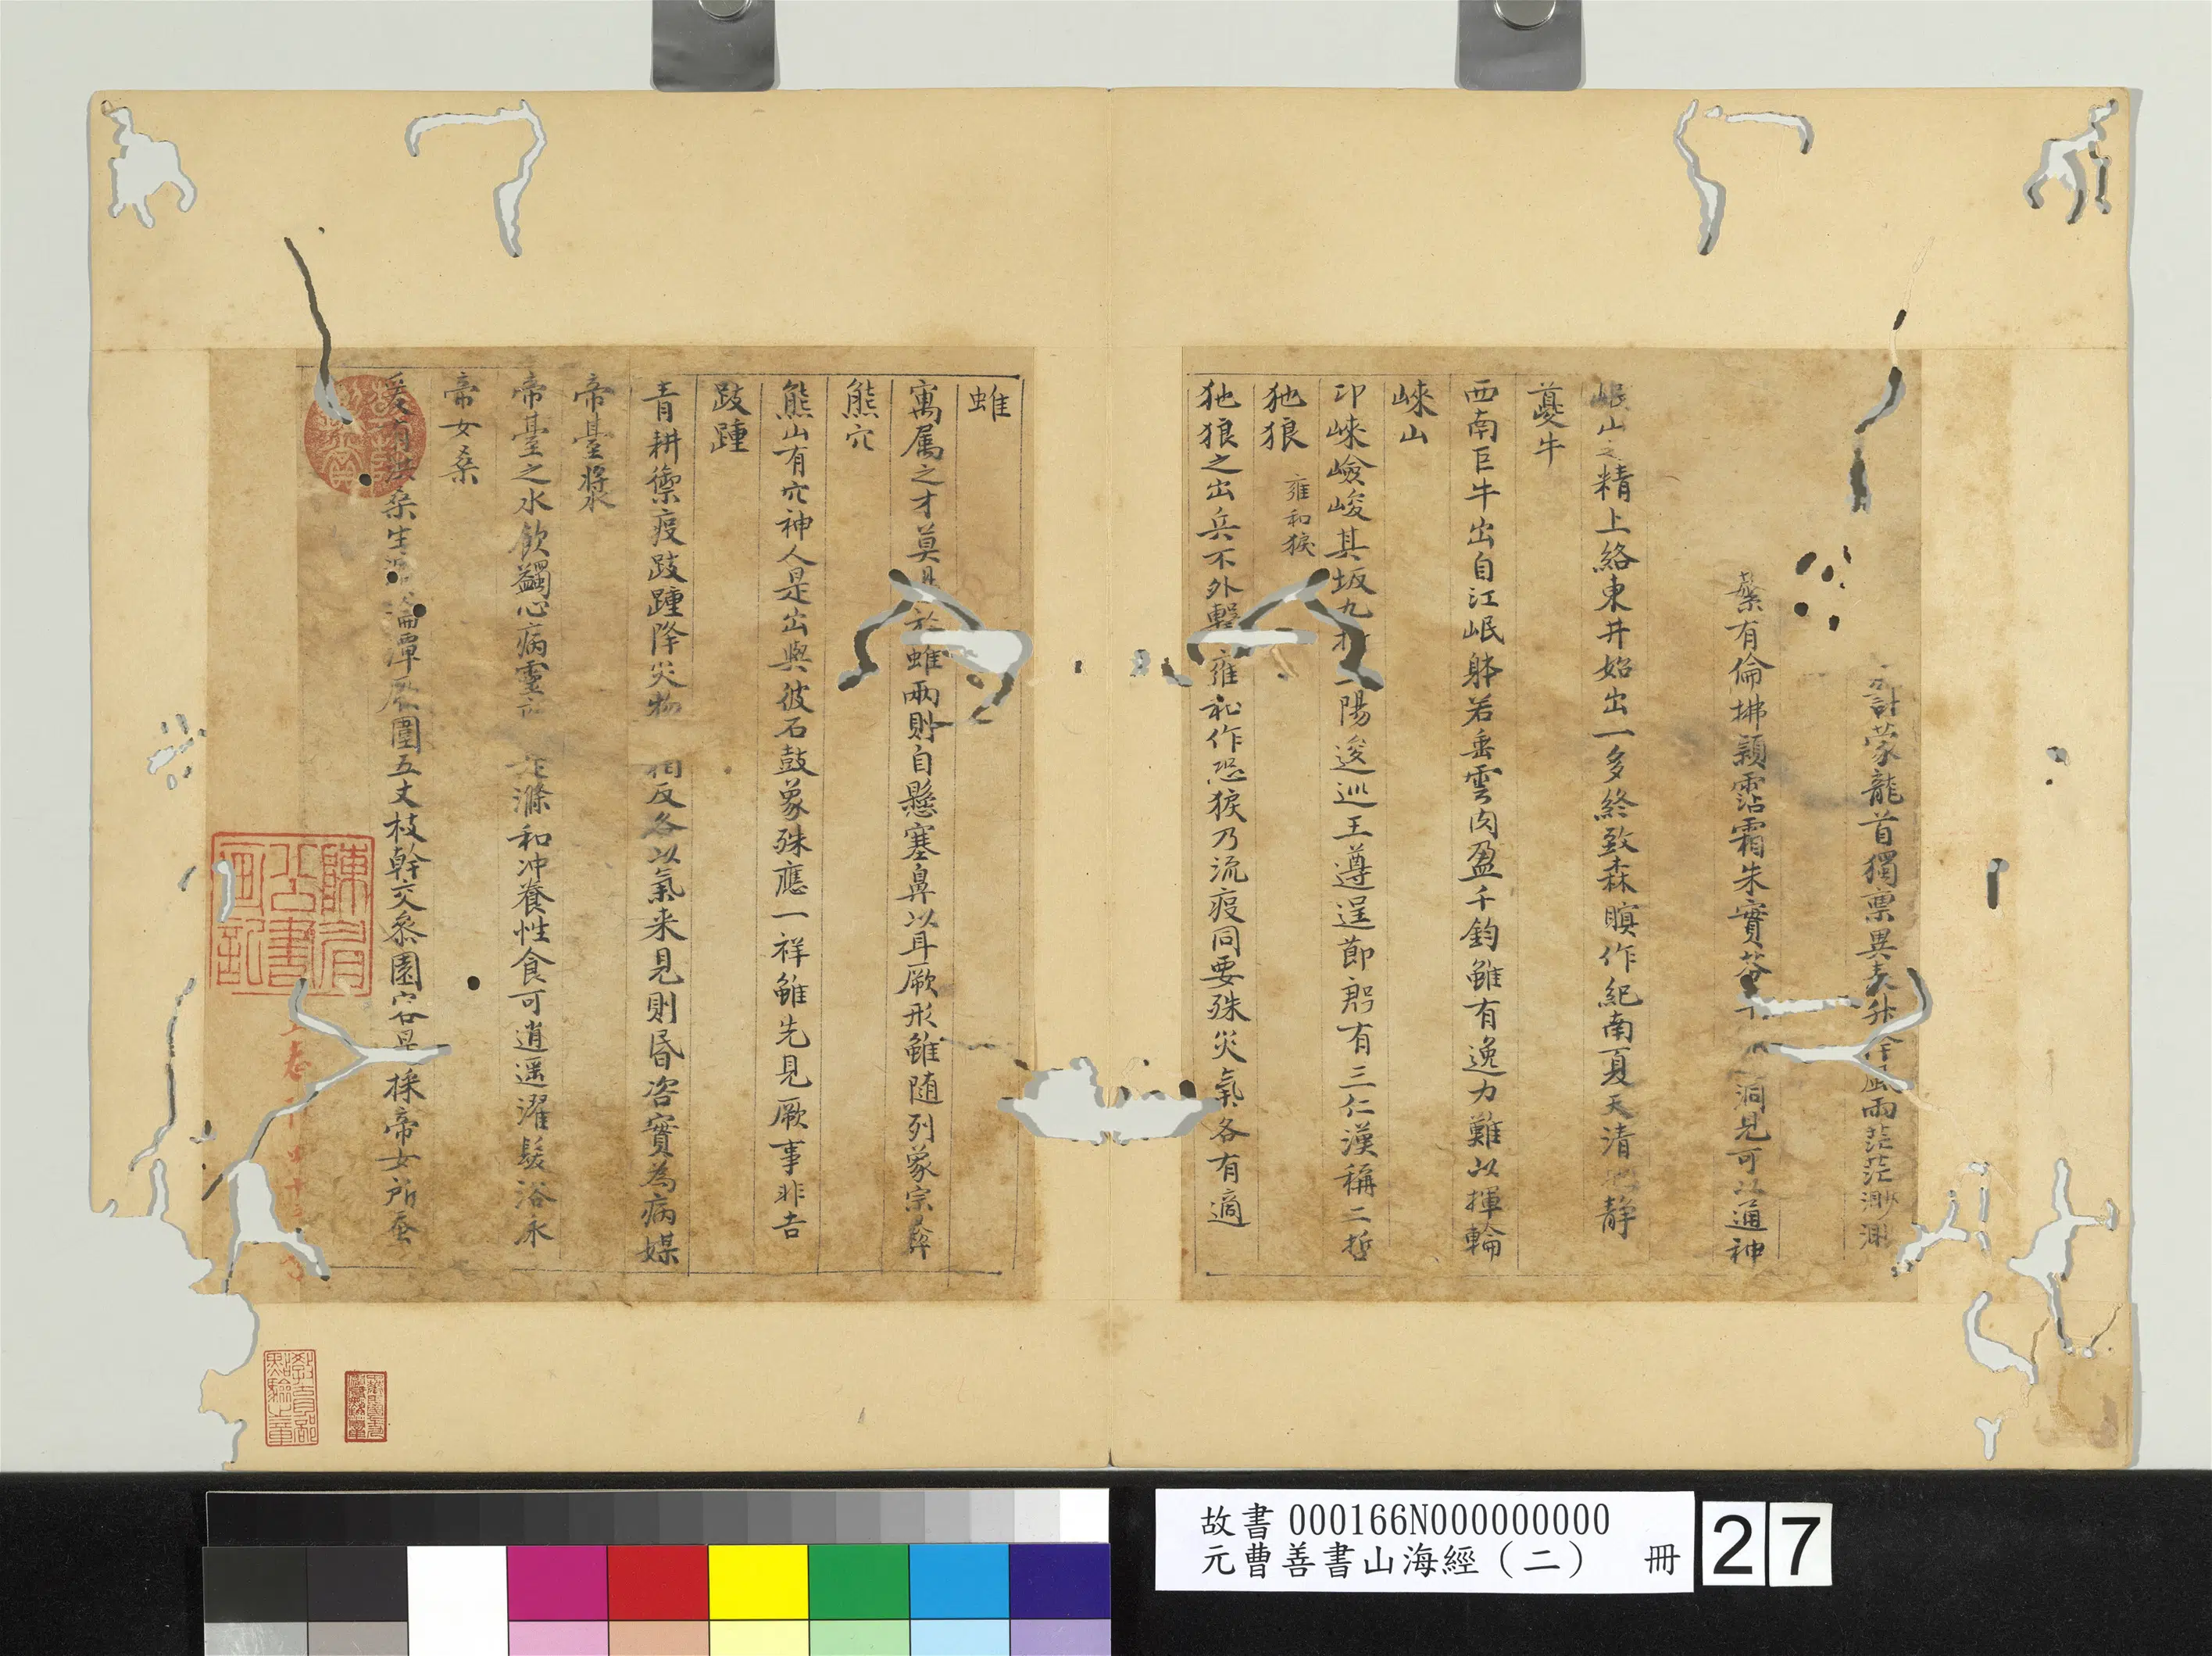 計蒙龍首獨禀異表升降風雨茫茫渺渺
蘩有倫拂穎霑霜朱實芬 洞見可以通神
岷山之精上絡東井始出一多終致森瞑作紀南夏天清 静
夔牛
西南巨牛出自江岷躰若垂雲肉盈千鈞雖有逸力難以揮輪
崍山
卭崍嶮峻其坂九折 陽逡巡王遵逞節殷有三仁漢稱二哲
狏狼 雍和狻
狏狼之出兵不外擊雍和作恐狻乃流疫同要殊災氣各有適
蜼
寓属之才莫 於蜼兩則自懸塞鼻以耳厥形雖随列象宗彛
熊穴
熊山有穴神人是出與彼石鼓象殊應一祥雖先見厥事非吉
跂踵
青耕禦疫跂踵降災物 相反各以氣来見則民咨實為病媒
帝臺漿
帝臺之水飲蠲心病靈 滌和冲養性食可逍遥濯髮浴永
帝女桑
爰有洪桑生 淪潭厥圍五丈枝幹交叅園客是採帝女所蚕
教育部
點驗之章
故書000166N000000000
元曹善書山海經（二） 冊 27